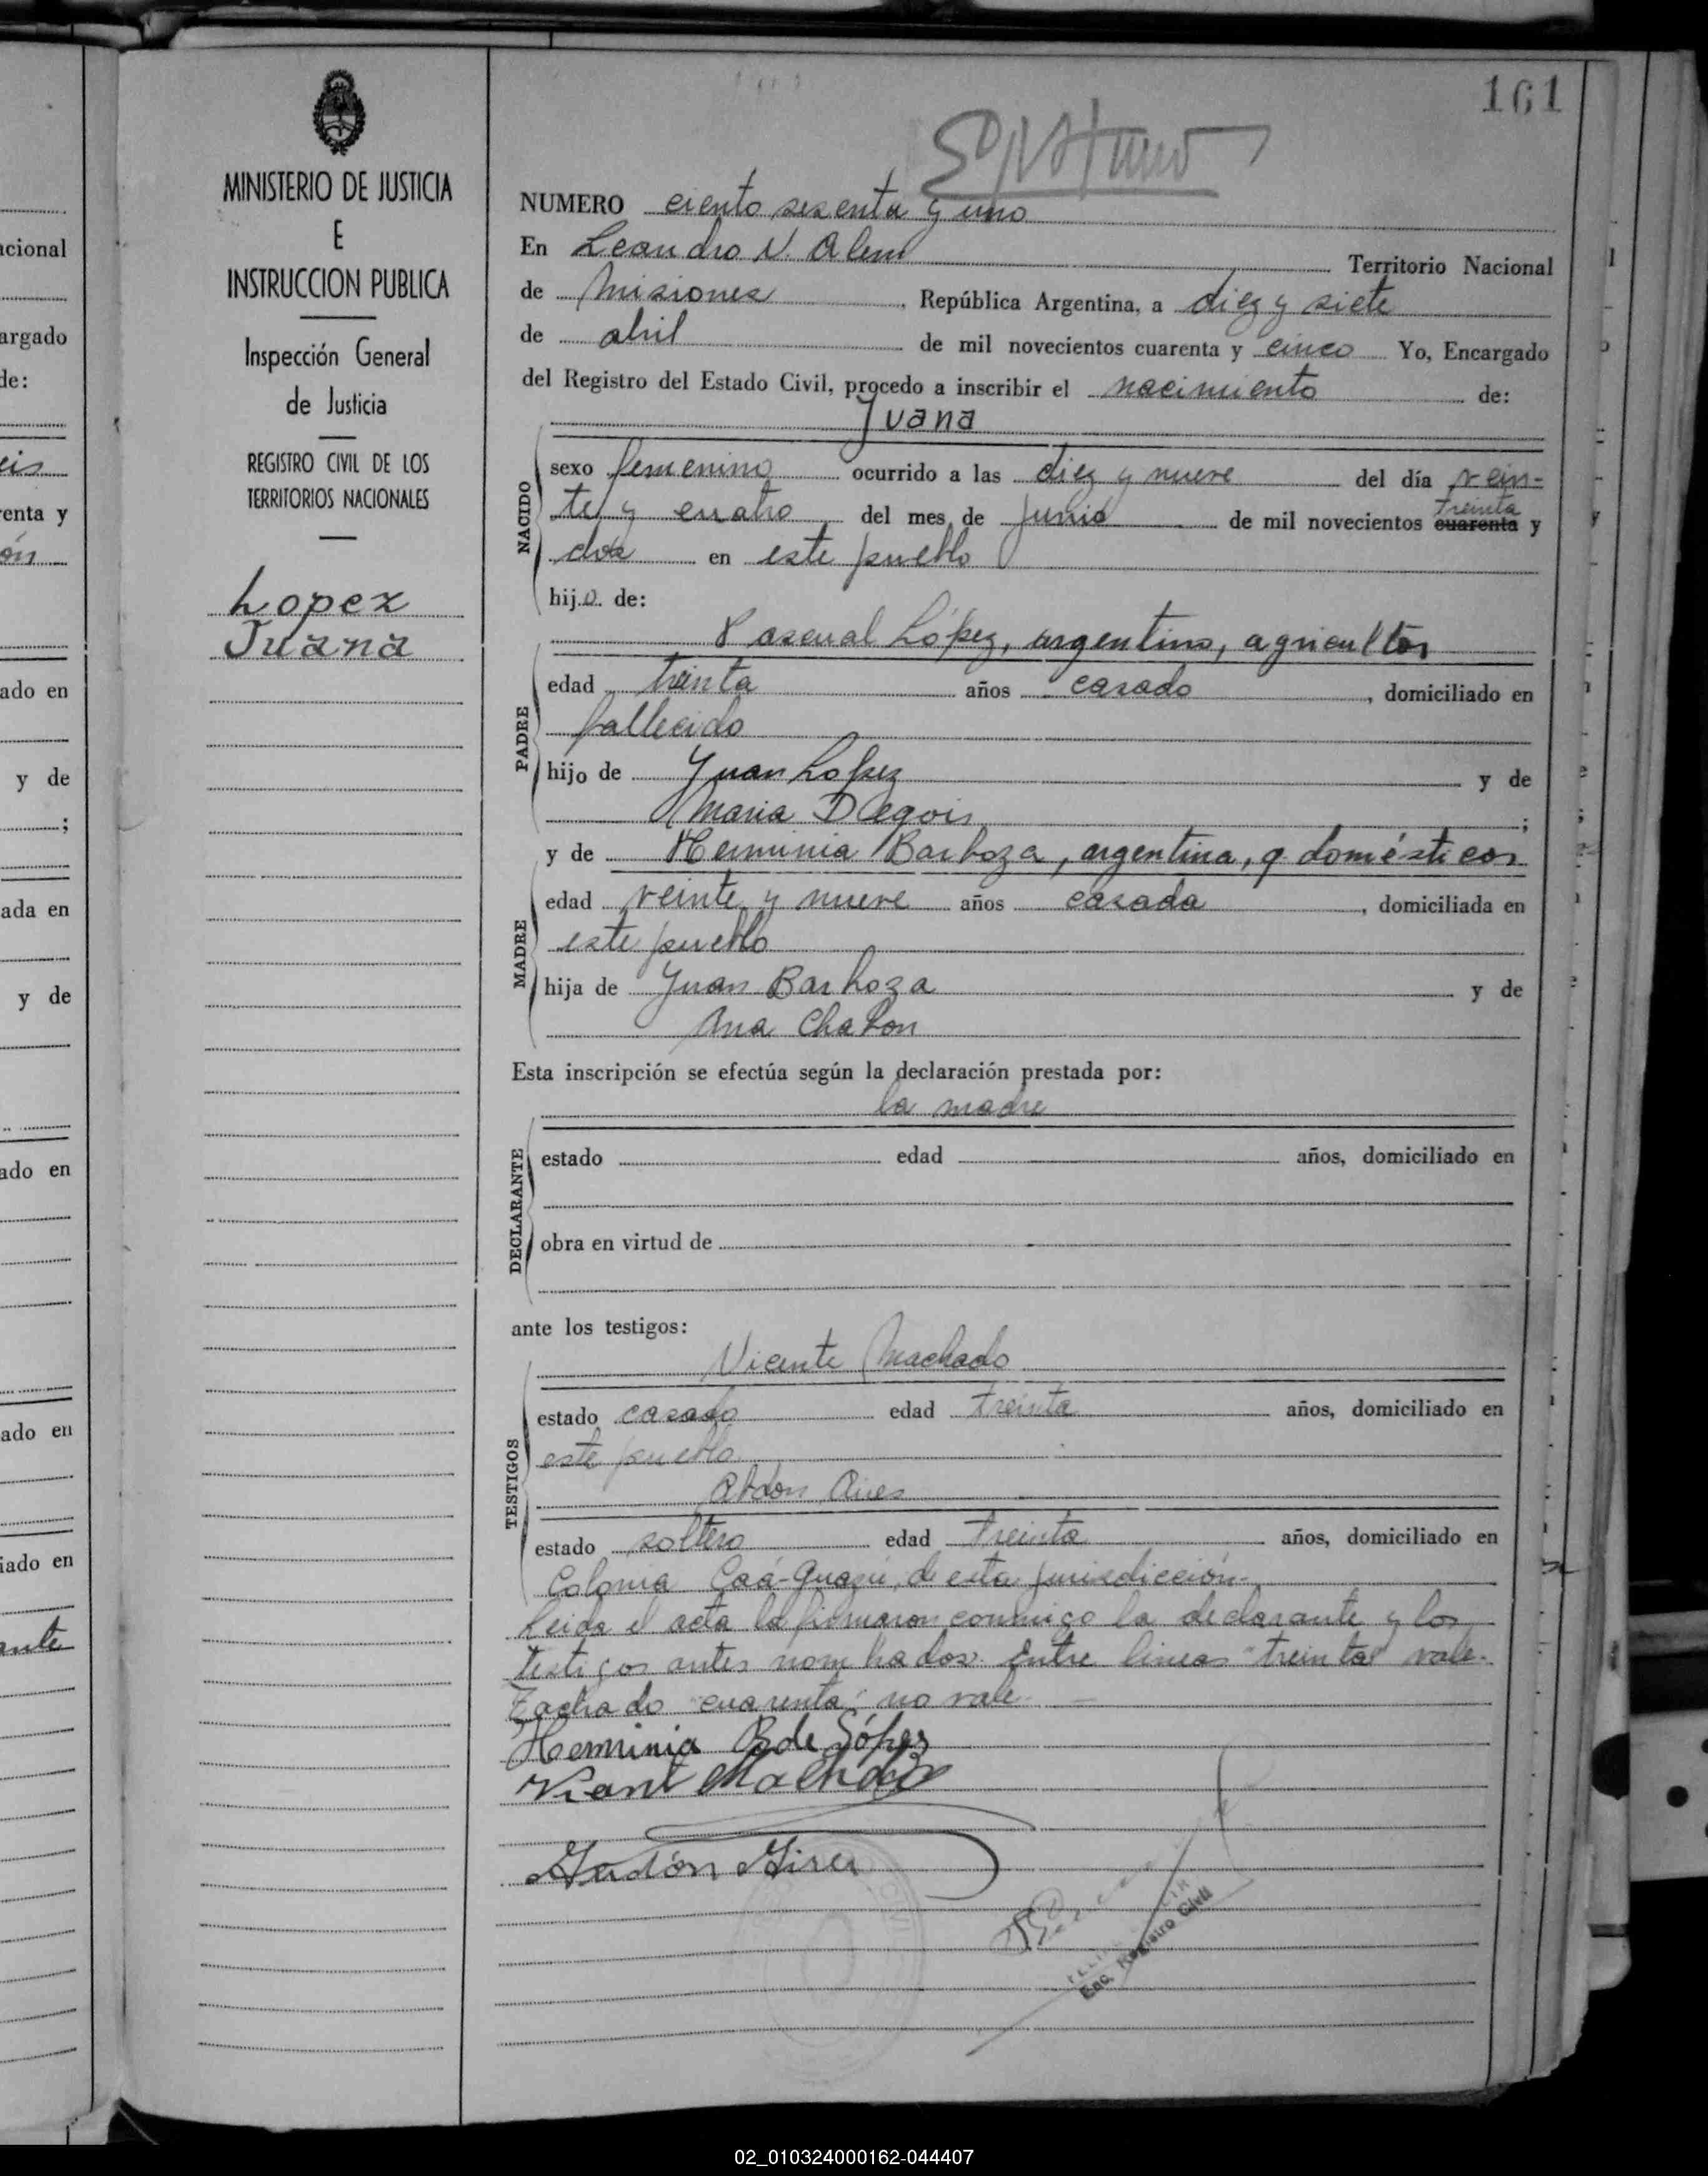 161
MINISTERIO DE JUSTICIA
E
INSTRUCCION PUBLICA
Inspección General
de Justicia
REGISTRO CIVIL DE LOS
TERRITORIOS NACIONALES
Lopez
Juana
NUMERO ciento sesenta y uno
En Leandro N. Alem Territorio Nacional
de Misiones, República Argentina, a diez y siete
de abril de mil novecientos cuarenta y cinco Yo, Encargado
del Registro del Estado Civil, procedo a inscribir el nacimiento de:
Juana
NACIDO
sexo femenino ocurrido a las diez y nueve del día vein=
treinta
te y cuatro del mes de Junio de mil novecientos cuarenta y
dos en este pueblo
hij.a. de:
Pascual López, argentino, agricultor
PADRE
edad treinta años casado, domiciliado en
fallecido
hijo de Juan López y de
Maria Degois;
y de Herminia Barboza, argentina, q. domésticos
MADRE
edad veinte y nueve años casada, domiciliada en
este pueblo
hija de Juan Barboza y de
Ana Chabon
Esta inscripción se efectúa según la declaración prestada por:
la madre
DECLARANTE
estado edad años, domiciliado en
obra en virtud de
ante los testigos:
Vicente Machado
TESTIGOS
estado casado edad treinta años, domiciliado en
este pueblo
Abdon Aires
estado soltero edad treinta años, domiciliado en
Colonia Caá-Guazú, de esta jurisdicción-
Leida el acta la firmaron conmigo la declarante y los
testigos antes nombrados. Entre lineas "treinta" vale.
Tachado "cuarenta" no vale. —
Herminia B de López
Machado
Enc. Registro Civil
acional
argado
de:
eis
enta y
ón
ado en
y de
;
ada en
y de
ado en
ado en
iado en
ante
02_010324000162-044407